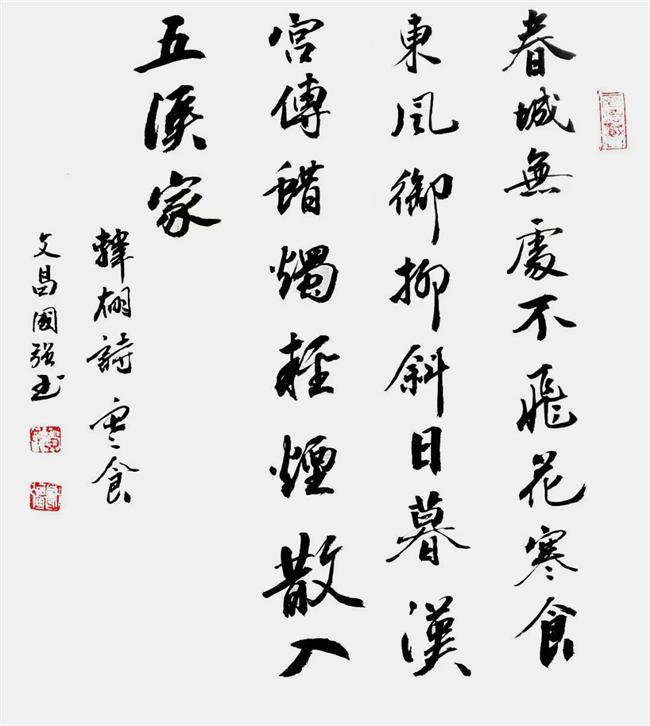 春城無處不飛花寒食
東風御柳斜日暮漢
宮傳蜡燭輕煙散入
五侯家
韓翃詩 寒食
文昌國强书